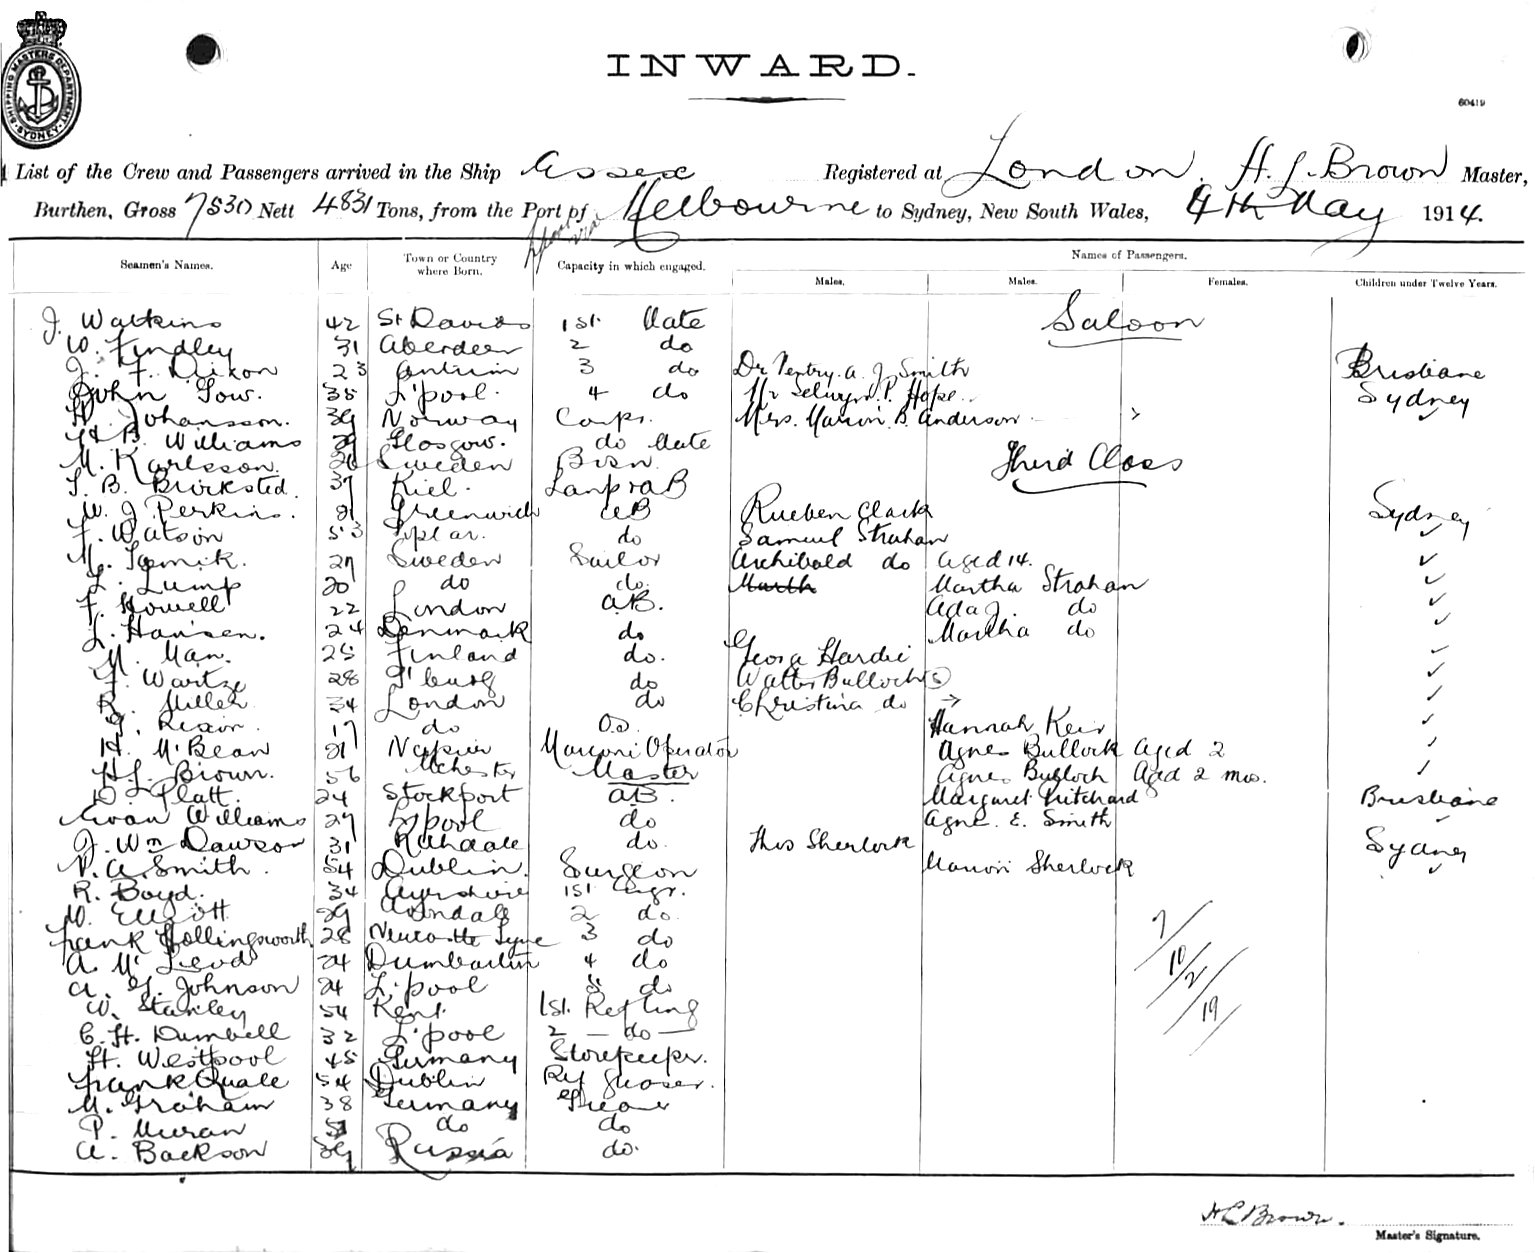 SHIPPING MASTERS DEPARTMENT SYDNEY
INWARD.
60419
List of the Crew and Passengers arrived in the Ship Essex Registered at London. H. L. Brown Master,
Burthen, Gross 7530 Nett 4831 Tons, from the Port of L'pool via Melbourne to Sydney, New South Wales, 4th May 1914.
Seamen's Names. Age Town or Country where Born. Capacity in which engaged. Names of Passengers.
Males. Males. Females. Children under Twelve Years.
J. Watkins 42 St Davids 1st Mate Saloon
W. Findley 31 Aberdeen 2 do
J. F. Dixon 23 Antrim 3 do Dr A. J. Smith Brisbane
John Gow. 35 L'pool. 4 do Mr Selwyn P. Hope Sydney
H. Johansson. 39 Norway Carpr. Mrs. Marion B. Anderson
H B. Williams 29 Glasgow. do Mate
M. Karlsson. 26 Sweden Bosn. Third Class
S. B. Bricksted. 37 Kiel. Lamps AB
W. J Perkins. 21 Greenwich AB Rueben Clark Sydney
F. Watson 53 do Samuel Strahan
M. 27 Sweden Sailor Archibald do Aged 14.
L. Lump 20 do do. Marth Martha Strahan
F. Howell 22 London AB. Ada J. do
L. Hansen. 24 Denmark do Martha do
M. Man. 25 Finland do. George Hardie
F. Wartze 28 P'burg do Walter Bulloch (s)
R. Miller 34 London do Christina do
G. Rixon. 17 do O.S. Hannah Keir
H. McBean 21 Napier Marconi Operator Agnes Bullock aged 2
H L. Brown. 56 Mchester Master Agnes Bulloch Aged 2 mos.
D. Platt. 24 Stockport AB. Margaret Pritchard Brisbane
Evan Williams 27 L'pool do Agne. E. Smith
J. Wm Dawson 31 do. Thos Sherlock Sydney
A. Smith. 54 Dublin. Surgeon Marion Sherlock
R. Boyd. 34 Ayrshire 1st Engr.
W. Elliott 29 2 do.
Frank Hollingsworth 28 Newcastle Tyne 3 do 7/
A. McLeod 24 Dumbarton 4 do 10/2
A. G. Johnson 24 L'pool 5 do
W. Stanley 54 Kent. 1st. Refting /19
C. H. Dumbell 32 L'pool 2 — do —
H. Westpool 45 Germany Storekeeper.
Frank Quale 54 Dublin Ref Greaser.
M. Graham 38 Germany Greaser
P. Muran do do
A. Backson 39 Russia do.
H L Brown.
Master's Signature.